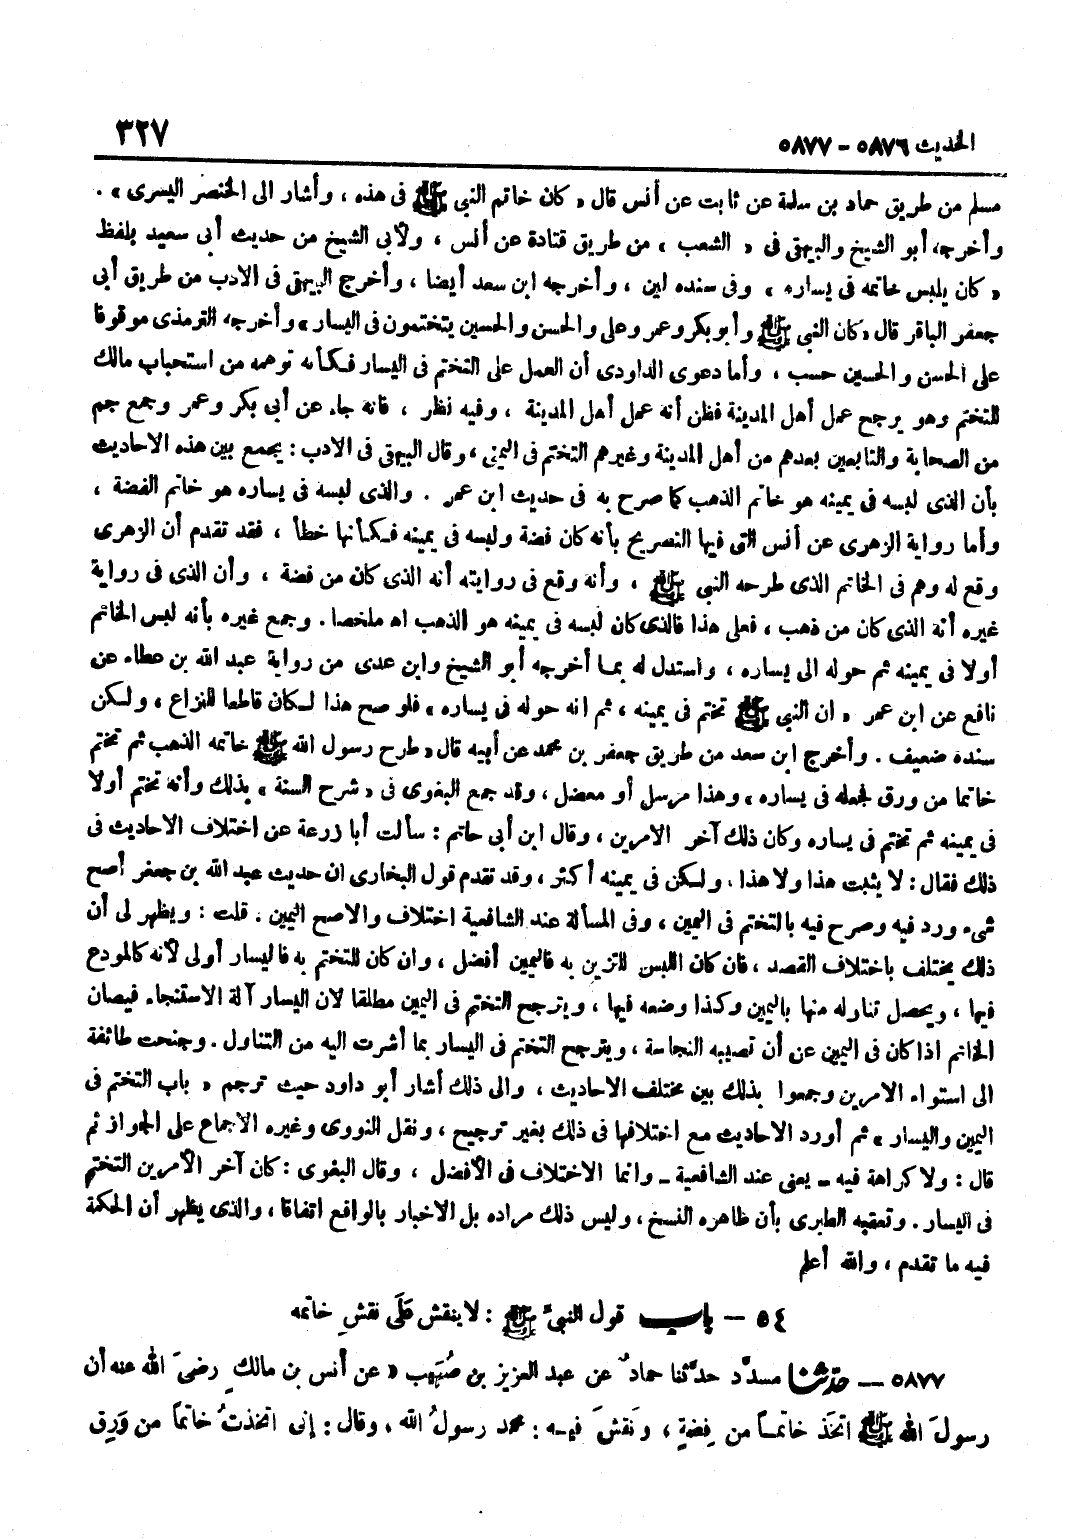 الحديث ٥٨٧٦ - ٥٨٧٧
٣٢٧
مسلم من طريق حماد بن سلمة عن ثابت عن أنس قال « كان خاتم النبي ﷺ فى هذه ، وأشار الى الخنصر اليسرى » .
وأخرجه أبو الشيخ والبيهقى فى « الشعب » من طريق قتادة عن أنس ، ولأبى الشيخ من حديث أبى سعيد بلفظ
« كان يلبس خاتمه فى يساره » وفى سنده لين ، وأخرجه ابن سعد أيضا ، وأخرج البيهقى فى الادب من طريق أبى
جعفر الباقر قال « كان النبي ﷺ وأبو بكر وعمر وعلى والحسن والحسين يتختمون فى اليسار » وأخرجه الترمذى موقوفا
على الحسن والحسين حسب ، وأما دعوى الداودى أن العمل على التختم فى اليسار فكأنه توهمه من استحباب مالك
للتختم وهو يرجح عمل أهل المدينة فظن أنه عمل أهل المدينة ، وفيه نظر ، فانه جاء عن أبى بكر وعمر وجمع جم
من الصحابة والتابعين بعدهم من أهل المدينة وغيرهم التختم فى اليمنى ، وقال البيهقى فى الادب : يجمع بين هذه الاحاديث
بأن الذى لبسه فى يمينه هو خاتم الذهب كما صرح به فى حديث ابن عمر . والذى لبسه فى يساره هو خاتم الفضة ،
وأما رواية الزهرى عن أنس التى فيها التصريح بأنه كان فضة ولبسه فى يمينه فكأنها خطأ ، فقد تقدم أن الزهرى
وقع له وهم فى الخاتم الذى طرحه النبي ﷺ ، وأنه وقع فى روايته أنه الذى كان من فضة ، وأن الذى فى رواية
غيره أنه الذى كان من ذهب ، فعلى هذا فالذى كان لبسه فى يمينه هو الذهب اه ملخصا . وجمع غيره بأنه لبس الخاتم
أولا فى يمينه ثم حوله الى يساره ، واستدل له بما أخرجه أبو الشيخ وابن عدى من رواية عبد الله بن عطاء عن
نافع عن ابن عمر « ان النبي ﷺ تختم فى يمينه ، ثم انه حوله فى يساره » فلو صح هذا لكان قاطعا للنزاع ، ولكن
سنده ضعيف . وأخرج ابن سعد من طريق جعفر بن محمد عن أبيه قال « طرح رسول الله ﷺ خاتمه الذهب ثم تختم
خاتما من ورق لجعله فى يساره » وهذا مرسل أو معضل ، وقد جمع البغوى فى « شرح السنة » بذلك وأنه تختم أولا
فى يمينه ثم تختم فى يساره وكان ذلك آخر الامرين ، وقال ابن أبى حاتم : سألت أبا زرعة عن اختلاف الاحاديث فى
ذلك فقال : لا يثبت هذا ولا هذا ، ولكن فى يمينه أكثر ، وقد تقدم قول البخارى ان حديث عبد الله بن جعفر أصح
شىء ورد فيه وصرح فيه بالتختم فى اليمين ، وفى المسألة عند الشافعية اختلاف والاصح اليمين . قلت : ويظهر لى أن
ذلك يختلف باختلاف القصد ، فان كان اللبس للتزين به فاليمين أفضل ، وان كان للتختم به فاليسار أولى لأنه كالمودع
فيها ، ويحصل تناوله منها باليمين وكذا وضعه فيها ، ويترجح التختم فى اليمين مطلقا لان اليسار آلة الاستنجاء فيصان
الخاتم اذا كان فى اليمين عن أن تصيبه النجاسة ، ويترجح التختم فى اليسار بما أشرت اليه من التناول . وجنحت طائفة
الى استواء الامرين وجمعوا بذلك بين مختلف الاحاديث ، والى ذلك أشار أبو داود حيث ترجم « باب التختم فى
اليمين واليسار » ثم أورد الاحاديث مع اختلافها فى ذلك بغير ترجيح ، ونقل النووى وغيره الاجماع على الجواز ثم
قال : ولا كراهة فيه - يعنى عند الشافعية - وانما الاختلاف فى الأفضل ، وقال البغوى : كان آخر الأمرين التختم
فى اليسار . وتعقبه الطبرى بأن ظاهره النسخ ، وليس ذلك مراده بل الاخبار بالواقع اتفاقا ، والذى يظهر أن الحكمة
فيه ما تقدم ، والله أعلم
٥٤ - باب قول النبىّ ﷺ : لا ينقش عَلَى نقشِ خاتمه
٥٨٧٧ - حدّثنا مسدَّد حدَّثنا حمادٌ عن عبد العزيز بن صُهَيب « عن أنس بن مالكٍ رضىَ الله عنه أن
رسولَ الله ﷺ اتخَذ خاتمـاً من فِضةٍ ، ونَقشَ فيـه : محمد رسولُ الله ، وقال : إنى اتخذتُ خاتماً من وَرِق